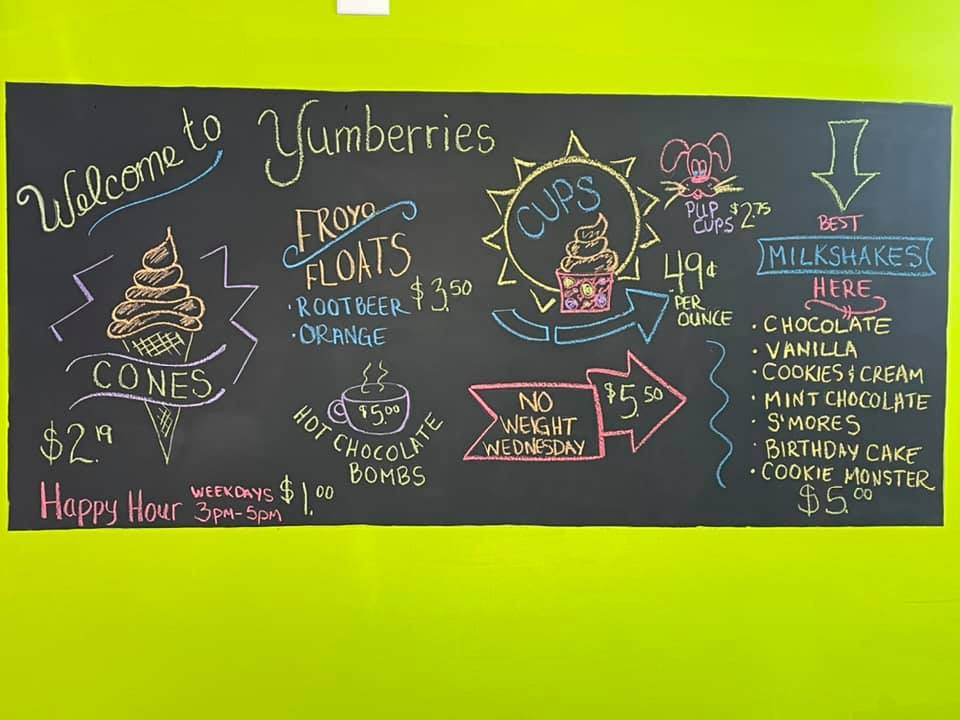 Welcome to Yumberries
CONES
$2.19
Happy Hour WEEKDAYS
3PM-5PM
$1.00
FROYO
FLOATS
·ROOTBEER
·ORANGE
$3.50
$5.00
HOT CHOCOLATE
BOMBS
CUPS
49¢
PER
OUNCE
PUP
CUPS
$2.75
NO
WEIGHT
WEDNESDAY
$5.50
BEST
MILKSHAKES
HERE
·CHOCOLATE
·VANILLA
·COOKIES & CREAM
·MINT CHOCOLATE
·S'MORES
·BIRTHDAY CAKE
·COOKIE MONSTER
$5.00